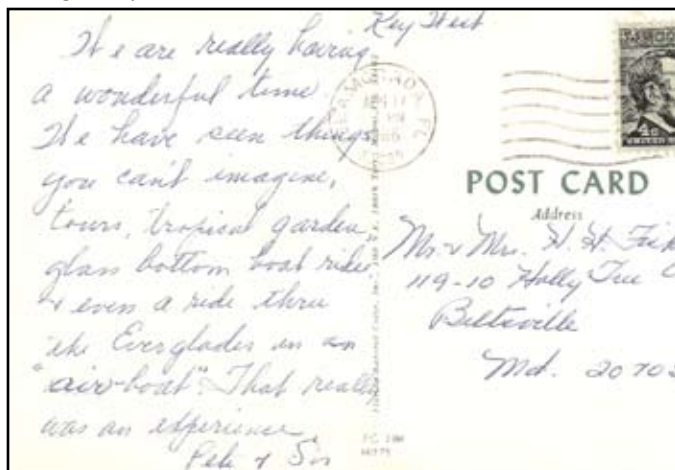 Key West
We are really having
a wonderful time.
We have seen things
you can't imagine,
tours, tropical garden
glass bottom boat rides
& even a ride thru
the Everglades in an
"air-boat". That really
was an experience.
Pete & Sis
4¢
POST CARD
Address
Mr. & Mrs. H. H.
119-10 Holly Tree
Beltsville
Md. 2070